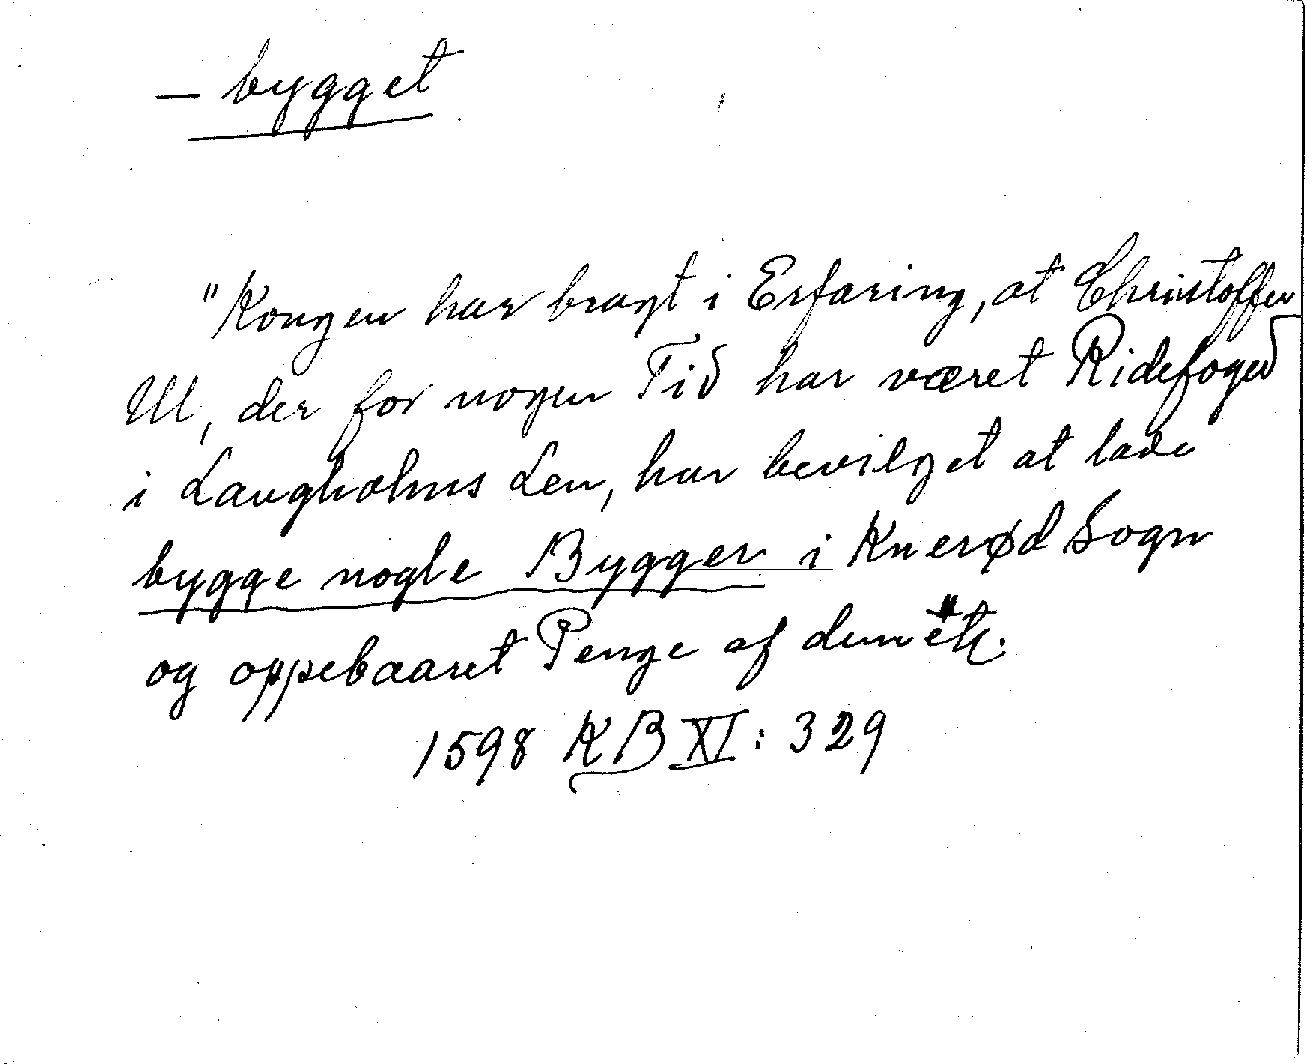 — bygget
"Kongen har bragt i Erfaring, at Christoffer
Ul, der for nogen Tid har været Ridefoged
i Laugholms Len, har bevilget at lade
bygge nogle Bygger i Knerød Sogn
og oppebaaret Penge af dem" etc.
1598 KB XI: 329